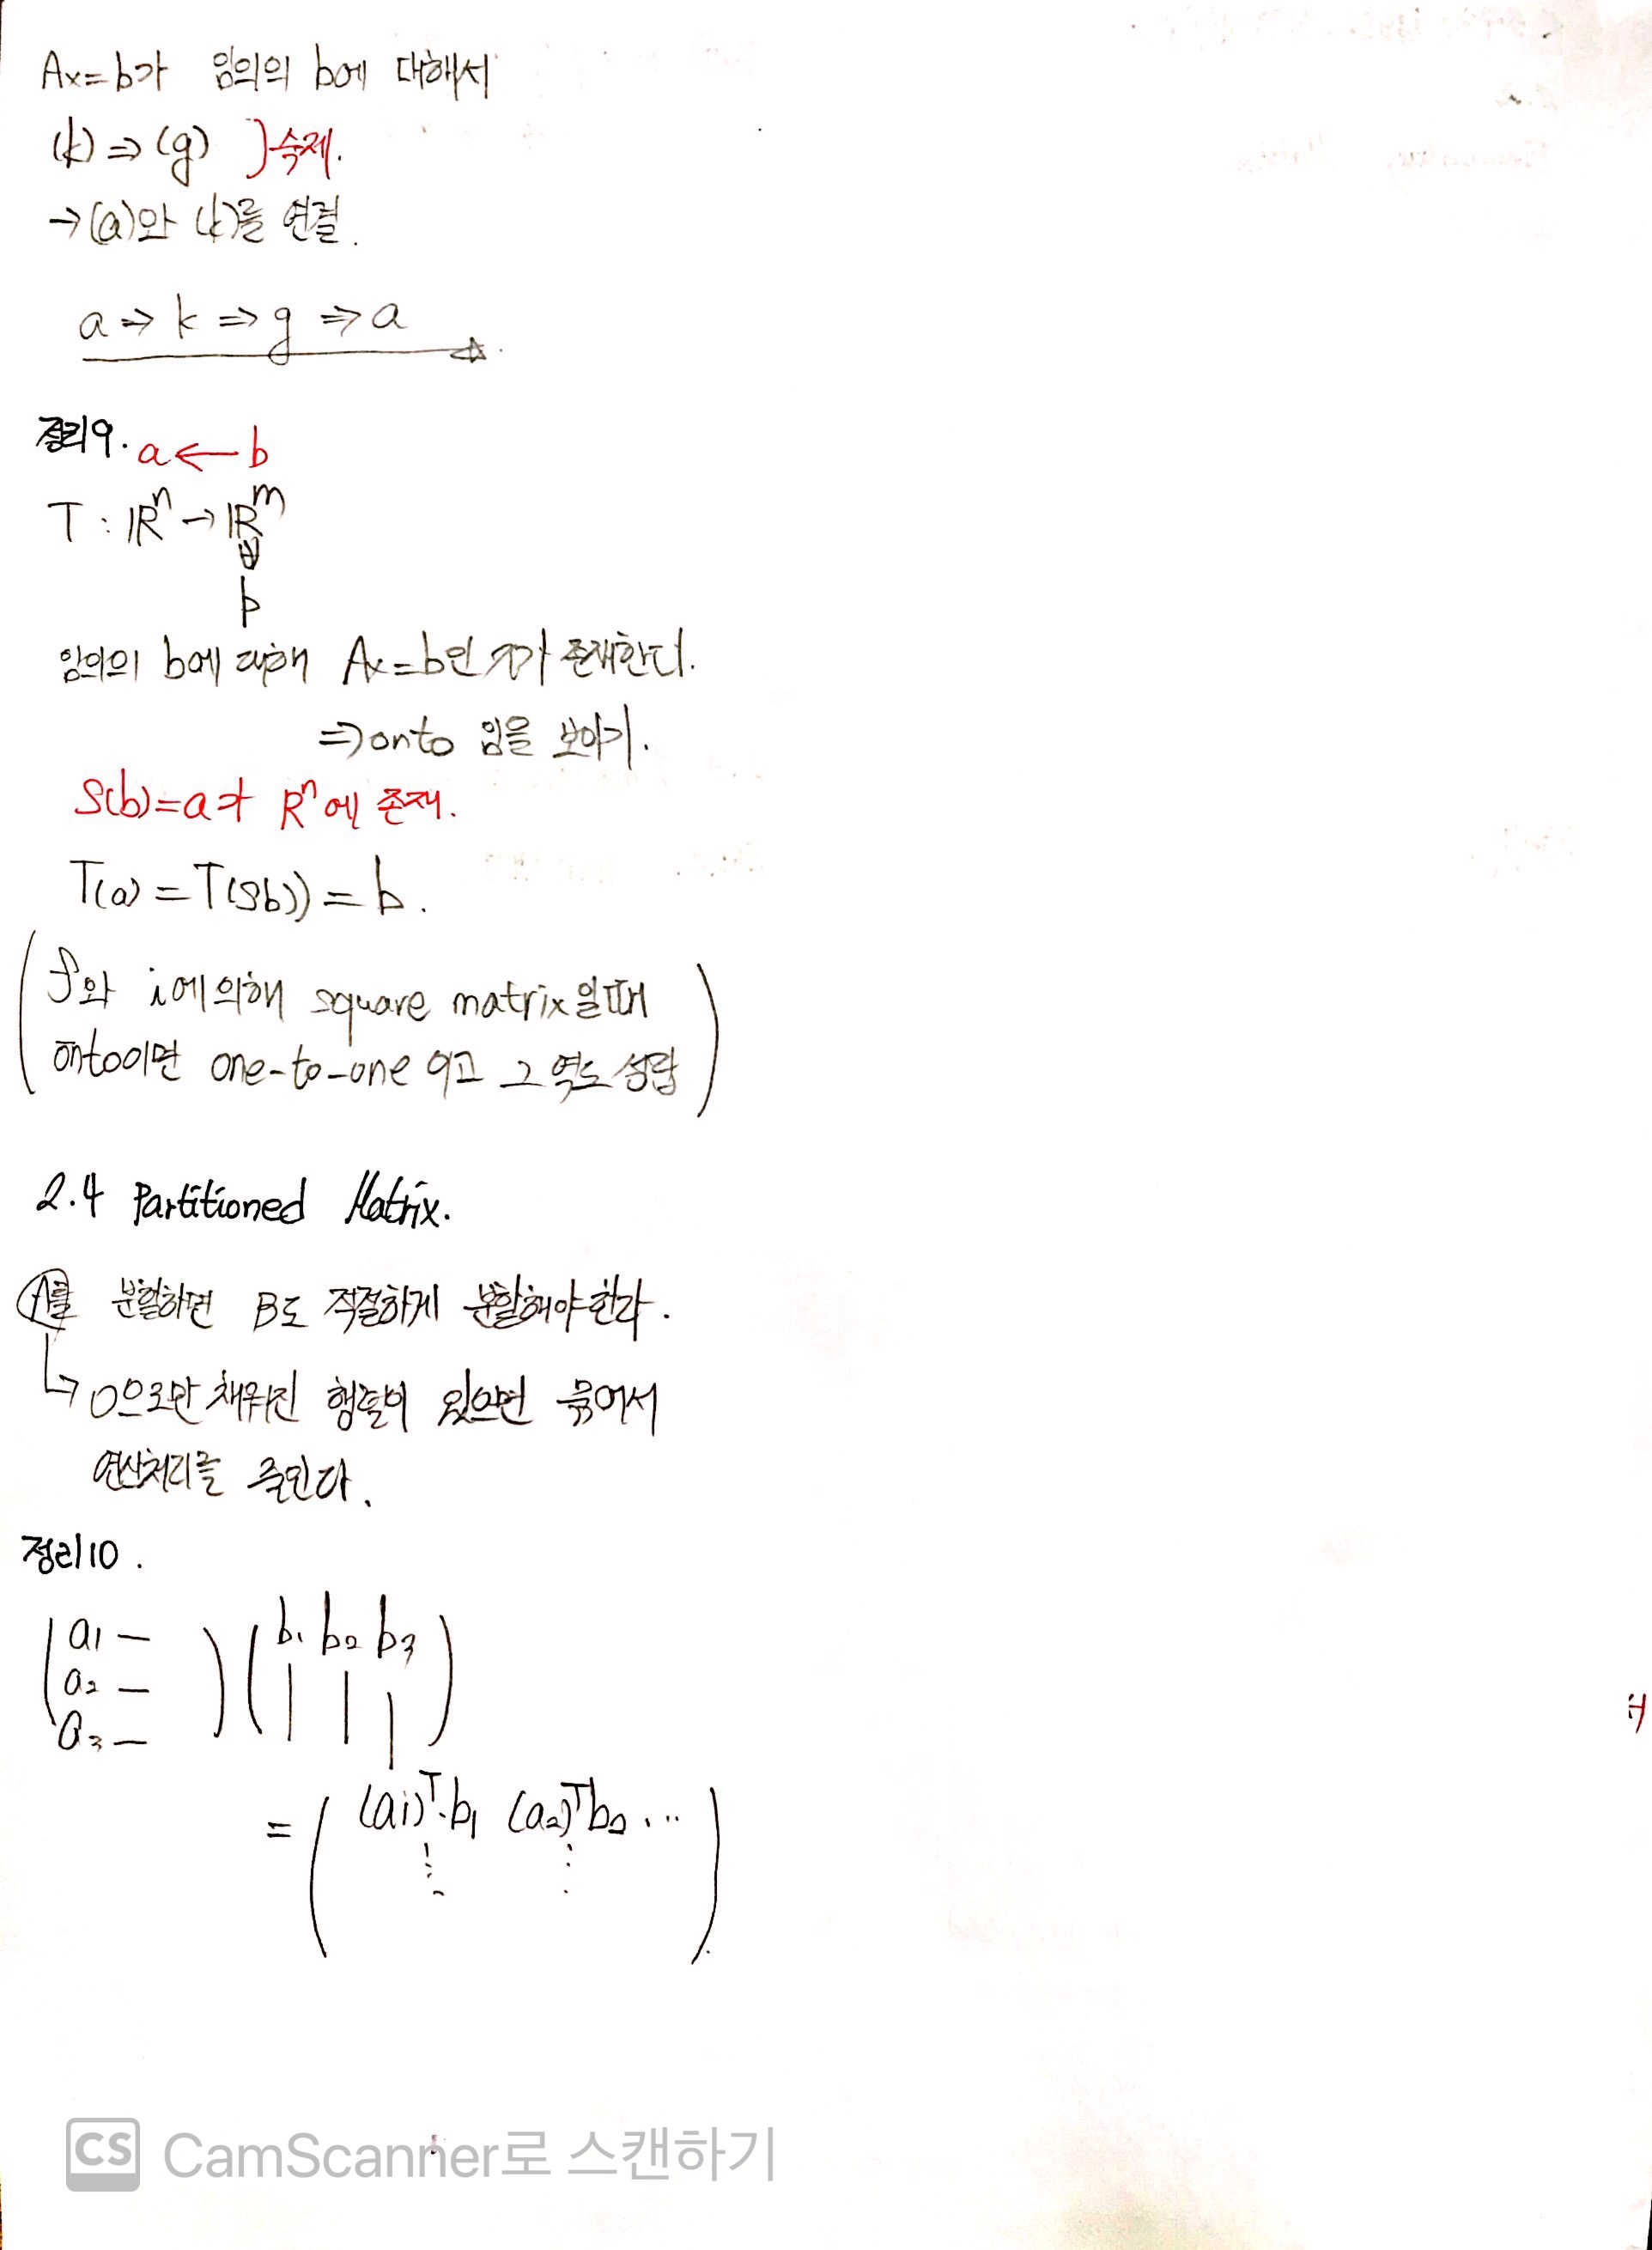 Ax=b가 임의의 b에 대해서
(k)⇒(g) }숙제.
→(a)와 (k)를 연결.
a⇒k⇒g⇒a
정리9. a←b
T : ℝⁿ→ℝᵐ
b
임의의 b에 대해 Ax=b인 x가 존재한다.
⇒onto 임을 보이기.
S(b)=a가 Rⁿ에 존재.
T(a)=T(S(b))=b.
f와 i에 의해 square matrix일때
onto이면 one-to-one 이고 그 역도 성립
2.4 Partitioned Matrix.
A를 분할하면 B도 적절하게 분할해야한다.
↳0으로만 채워진 행들이 있으면 묶어서
연산처리를 줄인다.
정리10.
b₁ b₂ b₃
a₁ —
a₂ —
a₃ —
= ( (a₁)ᵀ·b₁ (a₂)ᵀb₂ ... )
CS CamScanner로 스캔하기